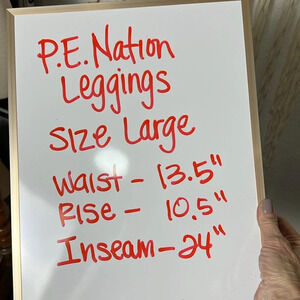 P.E. Nation
Leggings
Size Large
Waist - 13.5"
Rise - 10.5"
Inseam - 24"